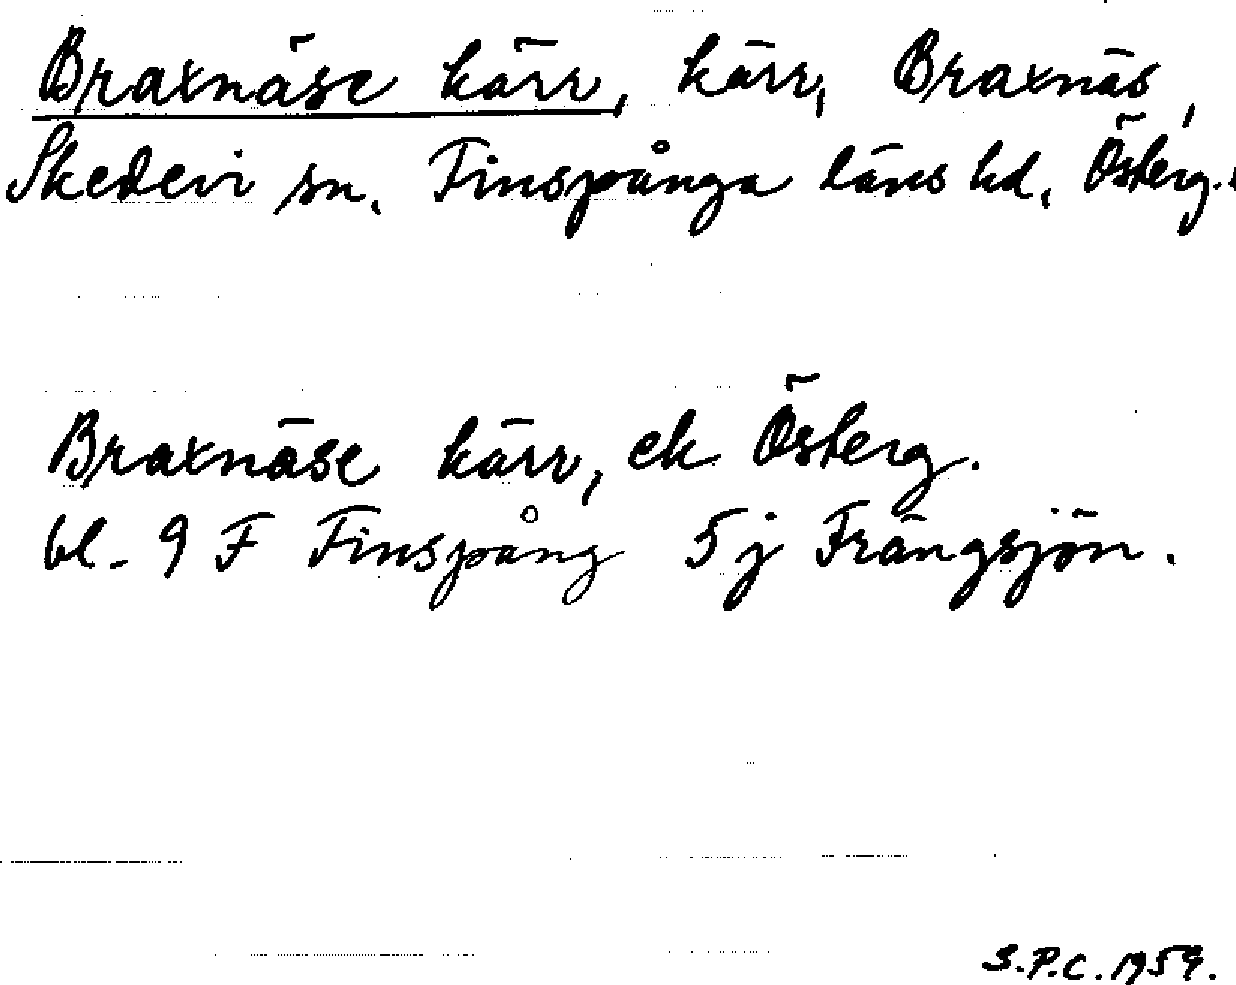 Braxnäse kärr, kärr, Braxnäs,
Skedevi sn. Finspånga läns hd, Österg.
Braxnäse kärr, ek Österg.
bl. 9 F Finspång 5j Frängsjön.
S.P.C. 1959.